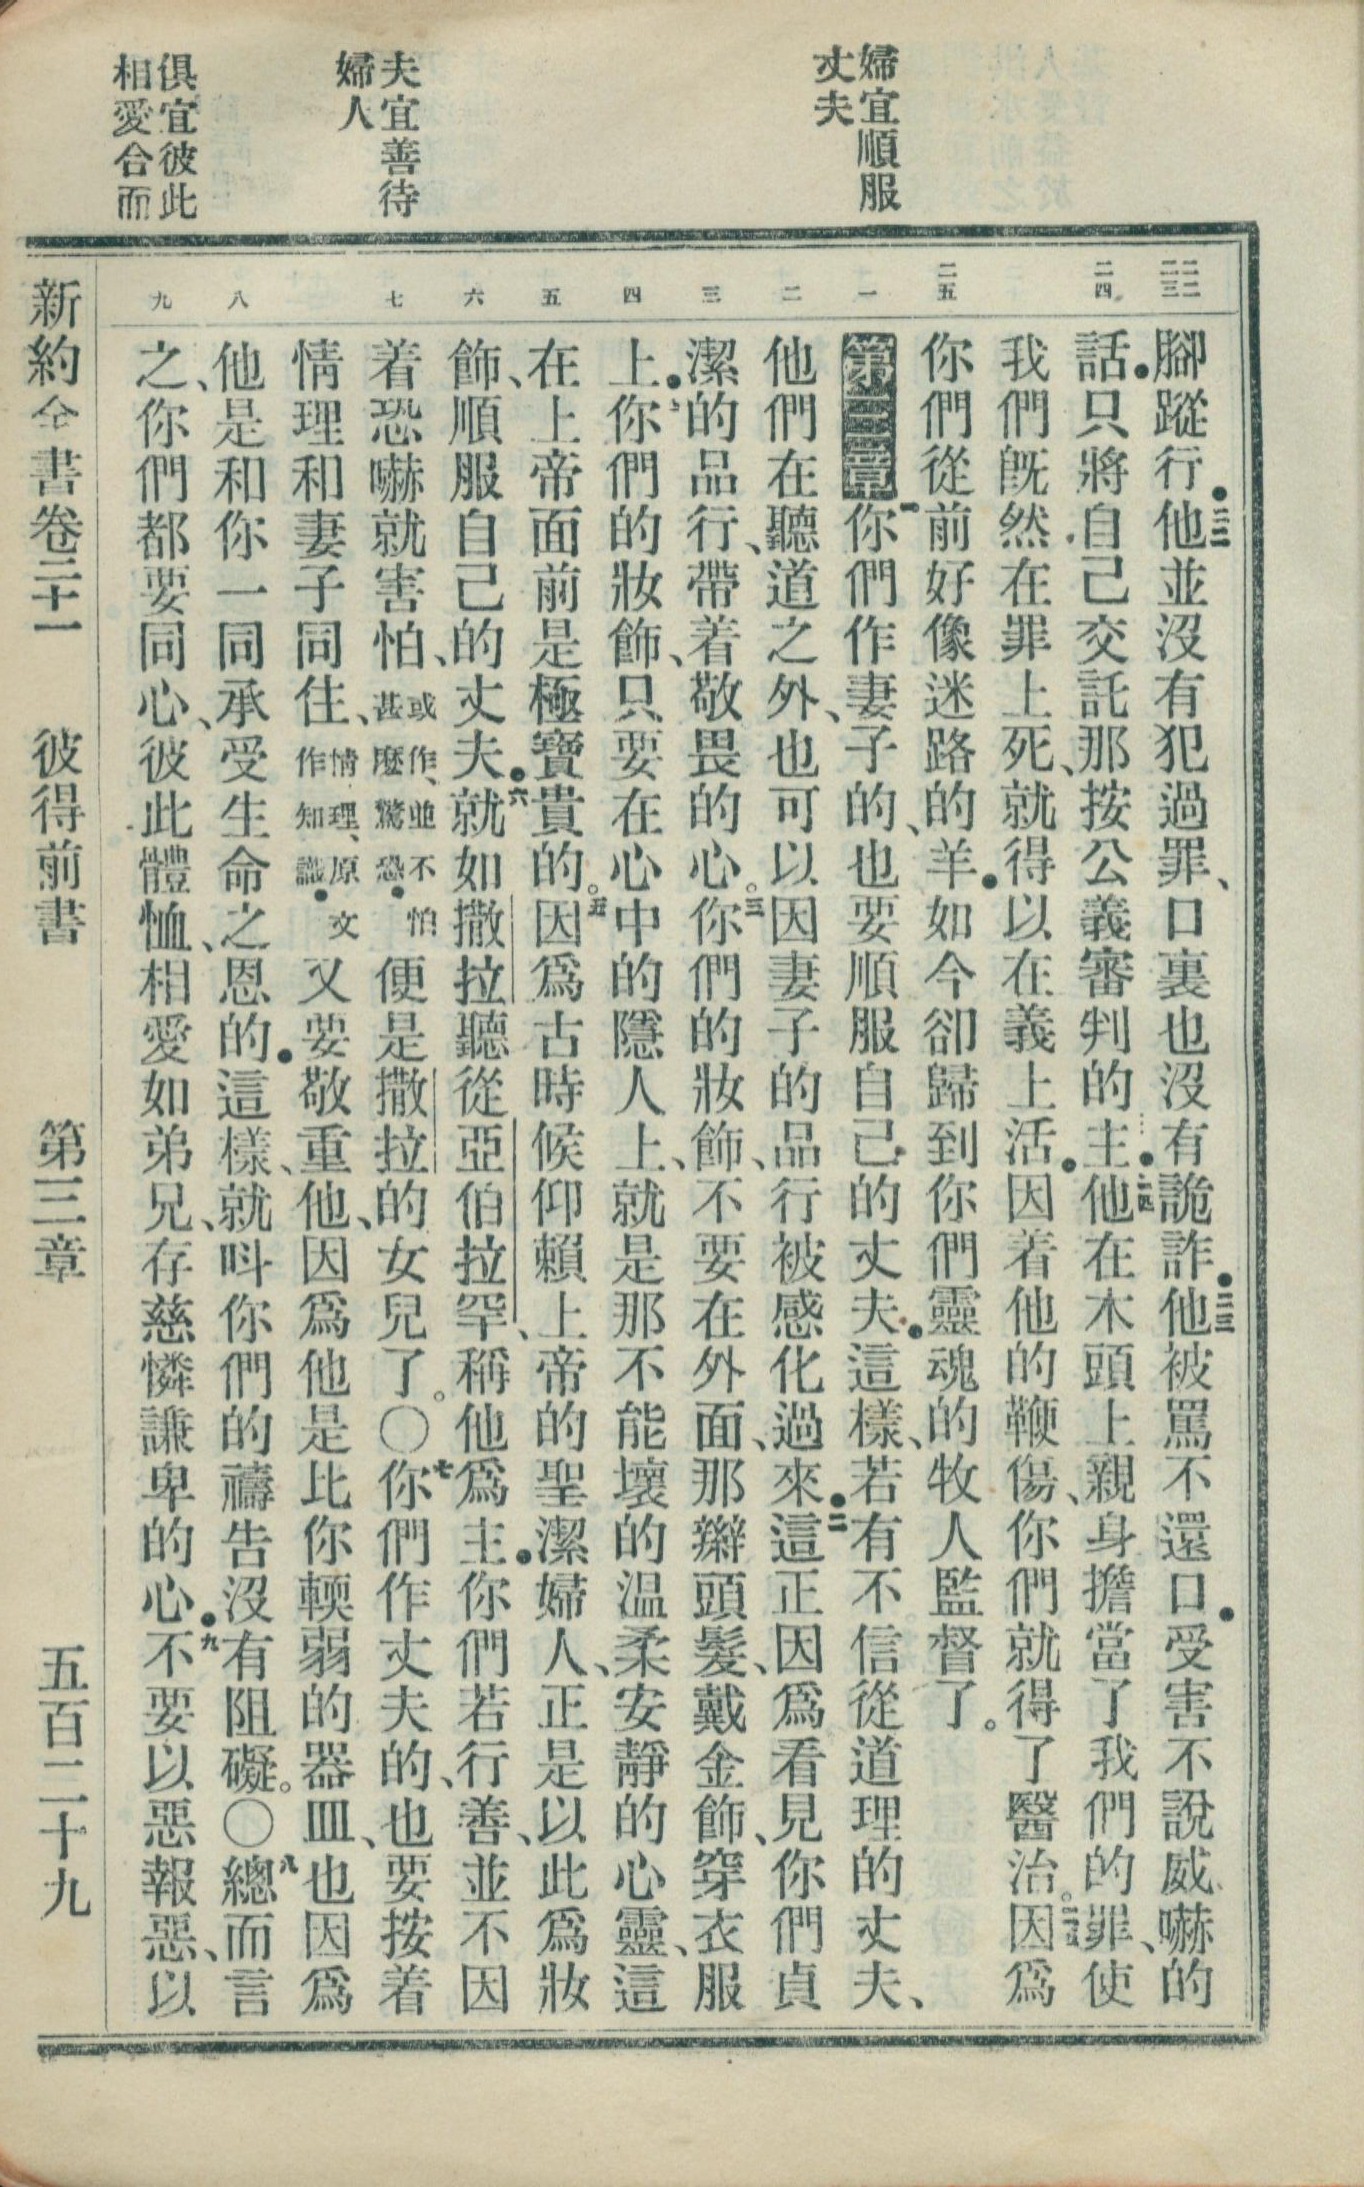 婦宜順服
丈夫
夫宜善待
婦人
俱宜彼此
相愛合而
二二 二三
二四
二五
一
二
三
四
五
六
七
八
九
腳蹤行。二二他並沒有犯過罪、口裏也沒有詭詐。二三他被罵不還口。受害不說威嚇的
話。只將自己交託那按公義審判的主。二四他在木頭上親身擔當了我們的罪、使
我們旣然在罪上死、就得以在義上活。因着他的鞭傷、你們就得了醫治。二五因爲
你們從前好像迷路的羊。如今卻歸到你們靈魂的牧人監督了。
第三章 一你們作妻子的、也要順服自己的丈夫。這樣、若有不信從道理的丈夫、
他們在聽道之外、也可以因妻子的品行被感化過來。二這正因爲看見你們貞
潔的品行、帶着敬畏的心。三你們的妝飾、不要在外面、那辮頭髮、戴金飾、穿衣服
上。四你們的妝飾、只要在心中的隱人上、就是那不能壞的温柔安靜的心靈、這
在上帝面前是極寶貴的。五因爲古時候仰賴上帝的聖潔婦人、正是以此爲妝
飾、順服自己的丈夫。六就如撒拉聽從亞伯拉罕、稱他爲主。你們若行善、並不因
着恐嚇就害怕、或作、並不怕甚麽驚恐。便是撒拉的女兒了。〇七你們作丈夫的、也要按着
情理和妻子同住、情理、原文作知識。又要敬重他、因爲他是比你輭弱的器皿、也因爲
他是和你一同承受生命之恩的。這樣、就呌你們的禱告沒有阻礙。〇八總而言
之、你們都要同心、彼此體恤、相愛如弟兄、存慈憐謙卑的心。九不要以惡報惡、以
新約全書卷二十一　彼得前書　第三章　五百二十九